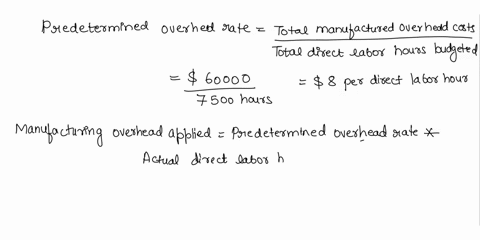 Predetermined overhed rate = Total manufactured overhead costs
Total direct labor hours budgeted
= $ 60000 = $ 8 per direct labor hour
7500 hours
Manufacturing overhead applied = Predetermined overhead rate *
Actual direct labor h